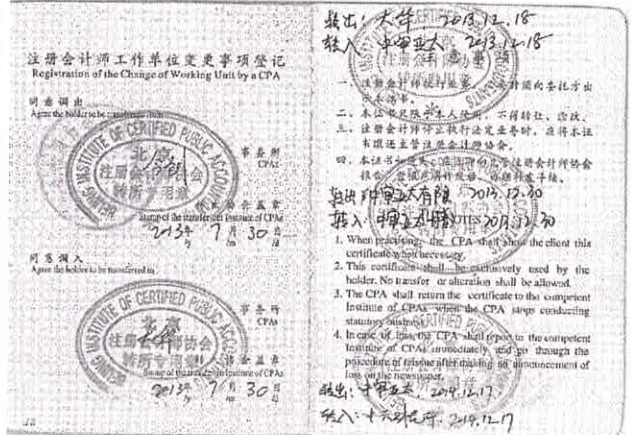 注册会计师工作单位变更事项登记
Registration of the Change of Working Unit by a CPA
同意调出
Agree the holder to be transferred from
事务所
CPAs
BEIJING INSTITUTE OF CERTIFIED PUBLIC ACCOUNTANTS
北京
注册会计师协会
转所专用章
Stamp of the transfer-out Institute of CPAs
2013年 7月 30日
同意调入
Agree the holder to be transferred to
事务所
CPAs
INSTITUTE OF CERTIFIED PUBLIC
北京
注册会计师协会
转所专用章
协会盖章
Stamp of the transfer-in Institute of CPAs
2013年 7月 30日
转出: 大华 2013.12.18
转入 中审亚太 2013.12.18
一、注册会计师执行业务，必要时须向委托方出示本证书。
二、本证书只限于本人使用，不得转让、涂改。
三、注册会计师停止执行法定业务时，应将本证书缴还主管注册会计师协会。
四、本证书如遗失，应立即向主管注册会计师协会
转出 中审亚太有限 2013.12.30
转入: 中审亚太 2013.12.30
NOTES
1. When practising, the CPA shall show the client this
certificate when necessary.
2. This certificate shall be exclusively used by the
holder. No transfer or alteration shall be allowed.
3. The CPA shall return the certificate to the competent
Institute of CPAs when the CPA stops conducting
statutory business.
4. In case of loss, the CPA shall report to the competent
Institute of CPAs immediately and go through the
procedure of reissue after making an announcement of
loss on the newspaper.
转出: 中审亚太 2014.12.17
转入: 2014.12.17